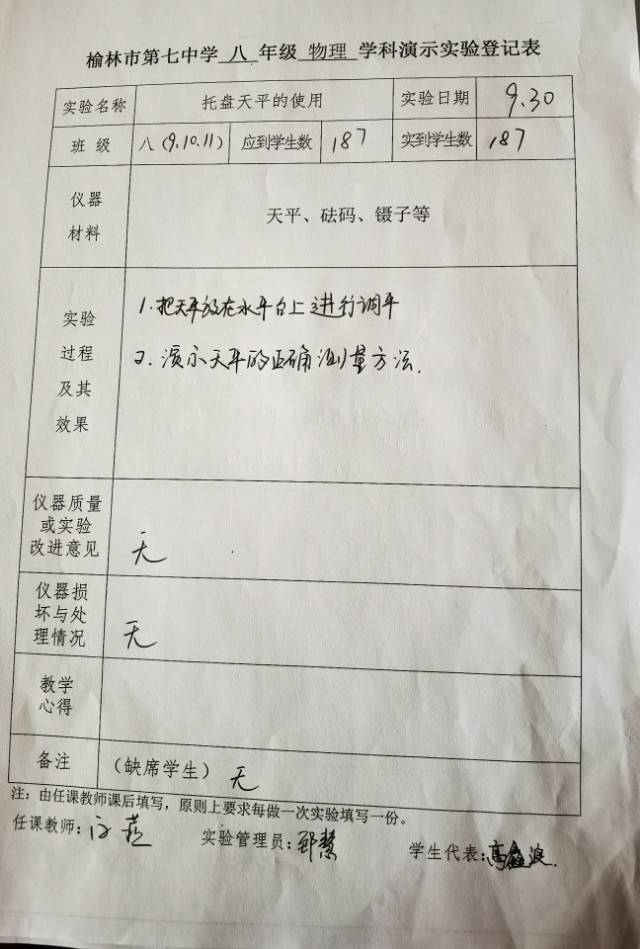 榆林市第七中学 八 年级 物理 学科演示实验登记表
实验名称 托盘天平的使用 实验日期 9.30
班 级 八(9.10.11) 应到学生数 187 实到学生数 187
仪器
材料
天平、砝码、镊子等
实验
过程
及其
效果
1.把天平放在水平台上进行调平
2.演示天平的正确测量方法.
仪器质量
或实验
改进意见
无
仪器损
坏与处
理情况
无
教学
心得
备注 (缺席学生) 无
注:由任课教师课后填写,原则上要求每做一次实验填写一份。
任课教师: 实验管理员: 学生代表: